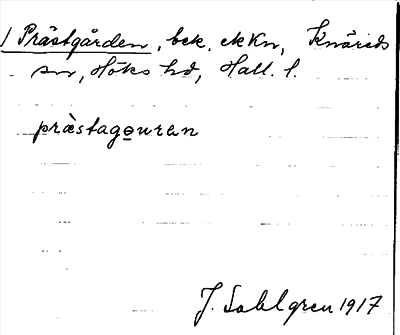 / Prästgården, bek. ek Kn, Knäreds
sn, Höks hd, Hall. l.
præ̀stagǫuran
J. Sahlgren 1917